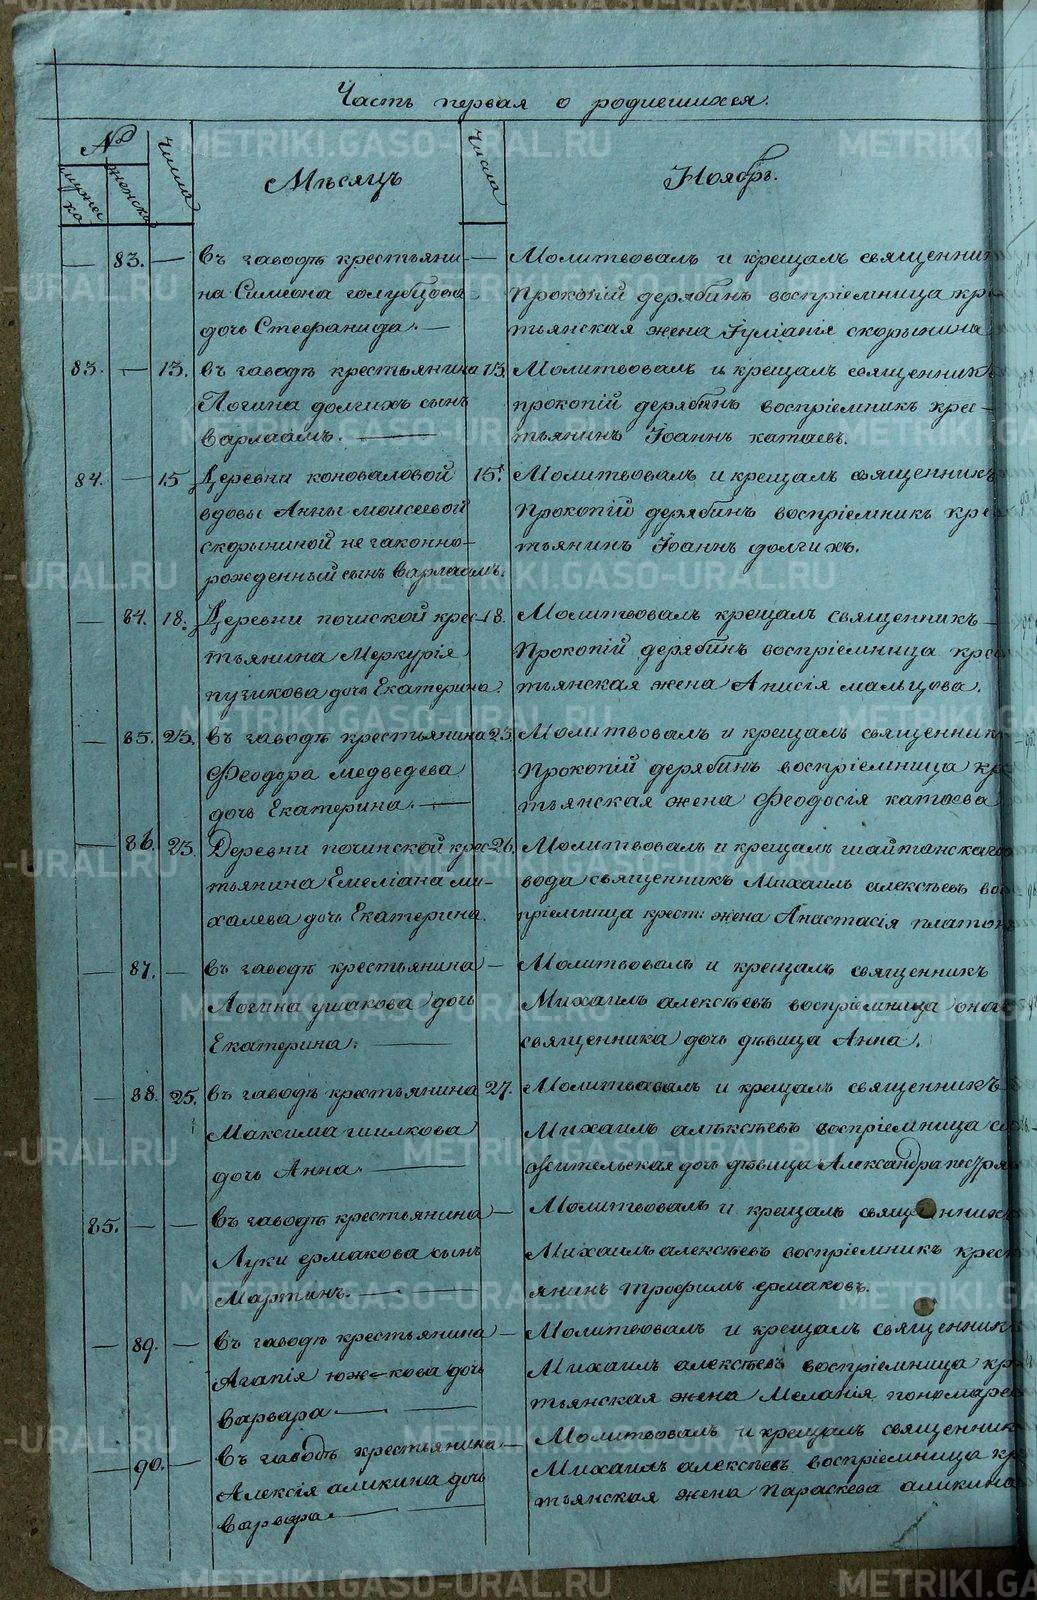 Часть первая о родившихся.
№
мужеска
женска
Числа
Мѣсяцъ
Числа
Ноябрь.
83. — въ заводѣ крестьяни- — Молитвовалъ и крещалъ священник
на Симеона голубцова Прокопій дерябинъ воспріемница кре
дочь Стефанида. — тьянская жена Іуліанія скорынина
83. — 13. въ заводѣ крестьянина 13. Молитвовалъ и крещалъ священникъ
Логина долгихъ сынъ прокопій дерябинъ воспріемник крес-
Варлаамъ. — тьянинъ Іоаннъ катаевъ.
84. — 15 Деревни коноваловой 15. Молитвовалъ и крещалъ священникъ
вдовы Анны моисеевой Прокопій дерябинъ воспріемникъ кре
скорыниной не законно- тьянинъ Іоаннъ долгихъ.
рожденный сынъ Варлаамъ.
— 84. 18. Деревни почиской крес- 18. Молитвовалъ крещалъ священникъ
тьянина Меркурія Прокопій дерябинъ воспріемница крес
пузикова дочь Екатерина. тьянская жена Анисія мальцова.
— 85. 23. въ заводѣ крестьянина 23. Молитвовалъ и крещалъ священник
Феодора медведева Прокопій дерябинъ воспріемница кр
дочь Екатерина. — тьянская жена Феодосія катаева
— 86. 23. Деревни починской крес- 26. Молитвовалъ и крещалъ шайтанскаго
тьянина Емеліана ми- вода священникъ Михаилъ алексѣевъ вос
халева дочь Екатерина. пріемница крест: жена Анастасія платон
— 87. — въ заводѣ крестьянина — Молитвовалъ и крещалъ священникъ
Логина ушакова дочь Михаилъ алексѣевъ воспріемница онаго
Екатерина. — священника дочь дѣвица Анна.
— 88. 25. въ заводѣ крестьянина 27. Молитвовалъ и крещалъ священникъ
Максима шилкова Михаилъ алѣксѣевъ воспріемница
дочь Анна. — жительская дочь дѣвица Александра
85. — — въ заводѣ крестьянина — Молитвовалъ и крещалъ священникъ
Луки ермакова сынъ Михаилъ алексѣевъ воспріемникъ крест
Мартинъ. — янинъ трофимъ ермаковъ.
— 89. — въ заводѣ крестьянина — Молитвовалъ и крещалъ священник
Агапія юж-кова дочь Михаилъ алексѣевъ воспріемница кр
Варвара — тьянская жена Меланія пономарев
— 90. — въ заводѣ крестьянина — Молитвовалъ и крещалъ священник
Алексія аликина дочь Михаилъ алексѣевъ воспріемница кр
Варвара. — тьянская жена Параскева аликина
METRIKI.GASO-URAL.RU